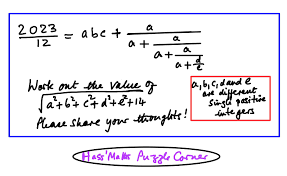 2023/12 = abc + a/(a + a/(a + a/(a + d/e)))
Work out the value of
√(a²+b²+c²+d²+e²+14)
Please share your thoughts!
a, b, c, d and e
are different
single positive
integers
Hass' Maths Puzzle Corner